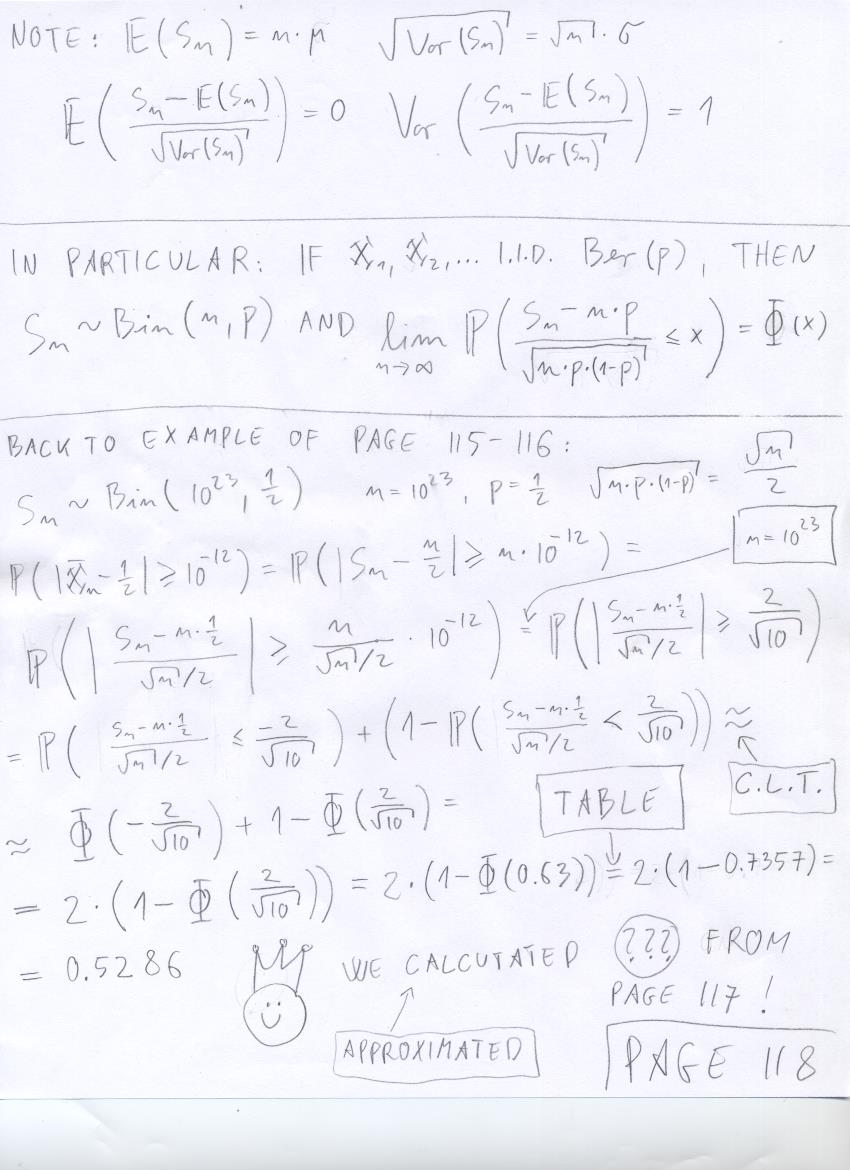 NOTE: 𝔼(Sₙ) = n·μ √Var(Sₙ) = √n · σ
𝔼( (Sₙ − 𝔼(Sₙ)) / √Var(Sₙ) ) = 0 Var( (Sₙ − 𝔼(Sₙ)) / √Var(Sₙ) ) = 1
IN PARTICULAR: IF X₁, X₂, ... I.I.D. Ber(p), THEN
Sₙ ~ Bin(n, p) AND lim n→∞ ℙ( (Sₙ − n·p) / √(n·p·(1−p)) ≤ x ) = Φ(x)
BACK TO EXAMPLE OF PAGE 115-116:
Sₙ ~ Bin(10²³, 1/2) n = 10²³, p = 1/2 √(n·p·(1−p)) = √n / 2
n = 10²³
ℙ(|X̄ₙ − 1/2| ≥ 10⁻¹²) = ℙ(|Sₙ − n/2| ≥ n·10⁻¹²) =
ℙ( | (Sₙ − n·1/2) / (√n/2) | ≥ n / (√n/2) · 10⁻¹² ) = ℙ( | (Sₙ − n·1/2) / (√n/2) | ≥ 2/√10 )
= ℙ( (Sₙ − n·1/2) / (√n/2) ≤ −2/√10 ) + (1 − ℙ( (Sₙ − n·1/2) / (√n/2) < 2/√10 )) ≈
C.L.T.
≈ Φ(−2/√10) + 1 − Φ(2/√10) =
TABLE
= 2·(1 − Φ(2/√10)) = 2·(1 − Φ(0.63)) = 2·(1 − 0.7357) =
= 0.5286 WE CALCUTATED ??? FROM
PAGE 117!
APPROXIMATED
PAGE 118